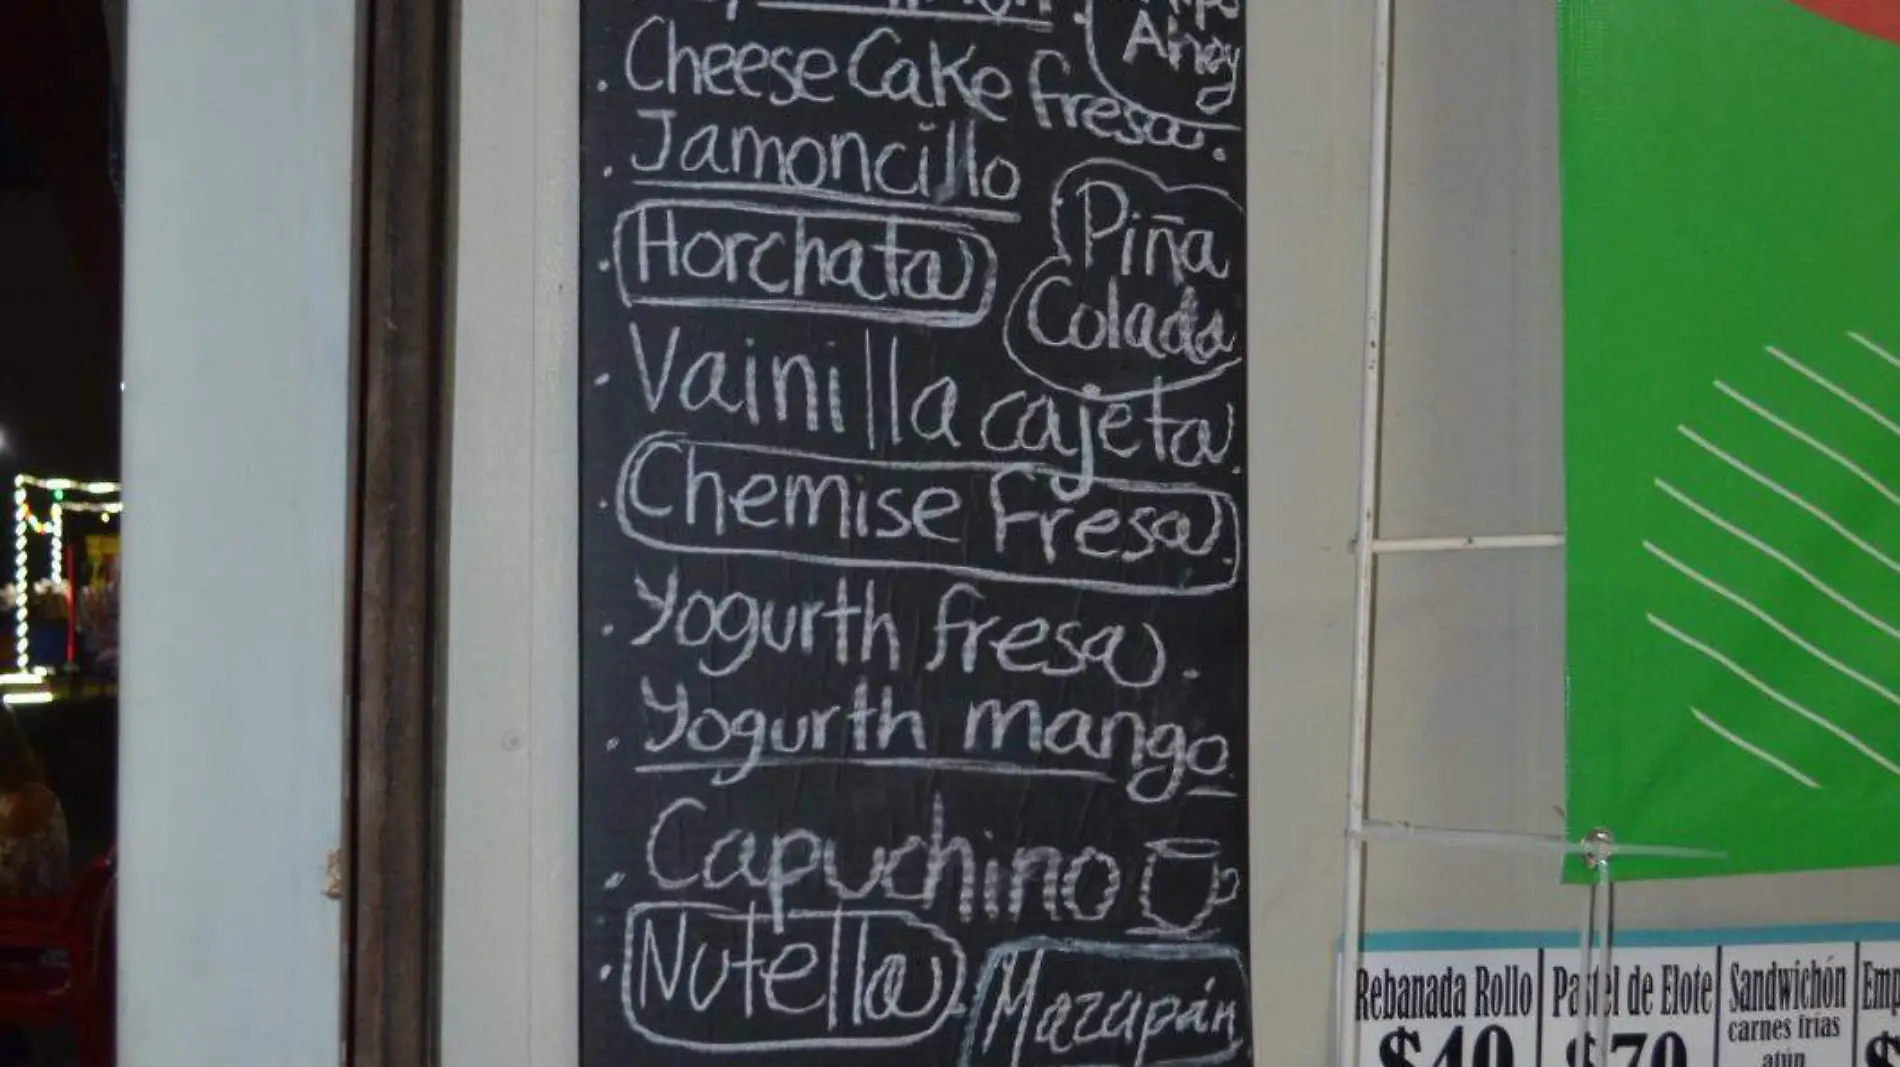 Ahoy
. Cheese Cake fresa.
. Jamoncillo
. Horchata
Piña
Colada
. Vainilla cajeta.
. Chemise Fresa
. Yogurth fresa.
. Yogurth mango
. Capuchino
. Nutella
. Mazapán
Rebanada Rollo
$40
Pastel de Elote
$70
Sandwichón
carnes frias
atún